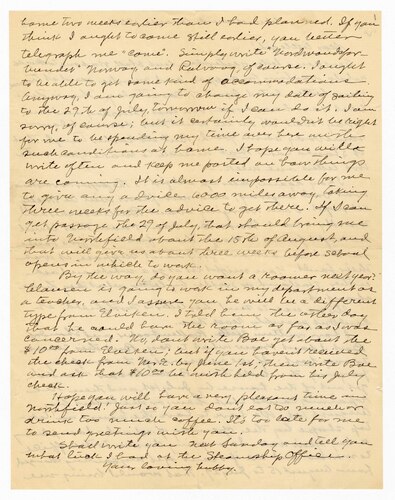 home two weeks earlier than I had planned. If you
think I ought to come still earlier, you better
telegraph me "Come". Simply write "Nordwoodsfor
Norway, and Rølvaag, of course. I ought
to be able to get some kind of accommodations
anyway. I am going to change my date of sailing
to the 29th of July, tomorrow if I can do it. I am
sorry, of course; but it certainly wouldn't be right
for me to be spending my time over here with
such conditions at home. I hope you will
write often and keep me posted on how things
are coming. It is almost impossible for me
to give any advice, 6000 miles away, taking
three weeks for the advice to get there. If I can
get passage the 29 of July, that should bring me
into Northfield about the 15th of August, and
that will give us about three weeks before school
opens in which to work.
By the way, do you want a roomer next year?
Clausen is going to work in my department as
a teacher, and I assure you he will be a different
type from I told him the other day
that he could have the room as far as I was
concerned. No, don't write Boe yet about the
$10.00 from but if you haven't received
the check from by June 1st, then write Boe
and ask that $10.00 be withheld from his July
check.
Hope you will have a very pleasant time in
Northfield! Just so you don't eat too much or
drink too much coffee. It's too late for me
to send greetings with you.
Shall write you next Sunday and tell you
what luck I had at the Steamship Office.
Your loving hubby.